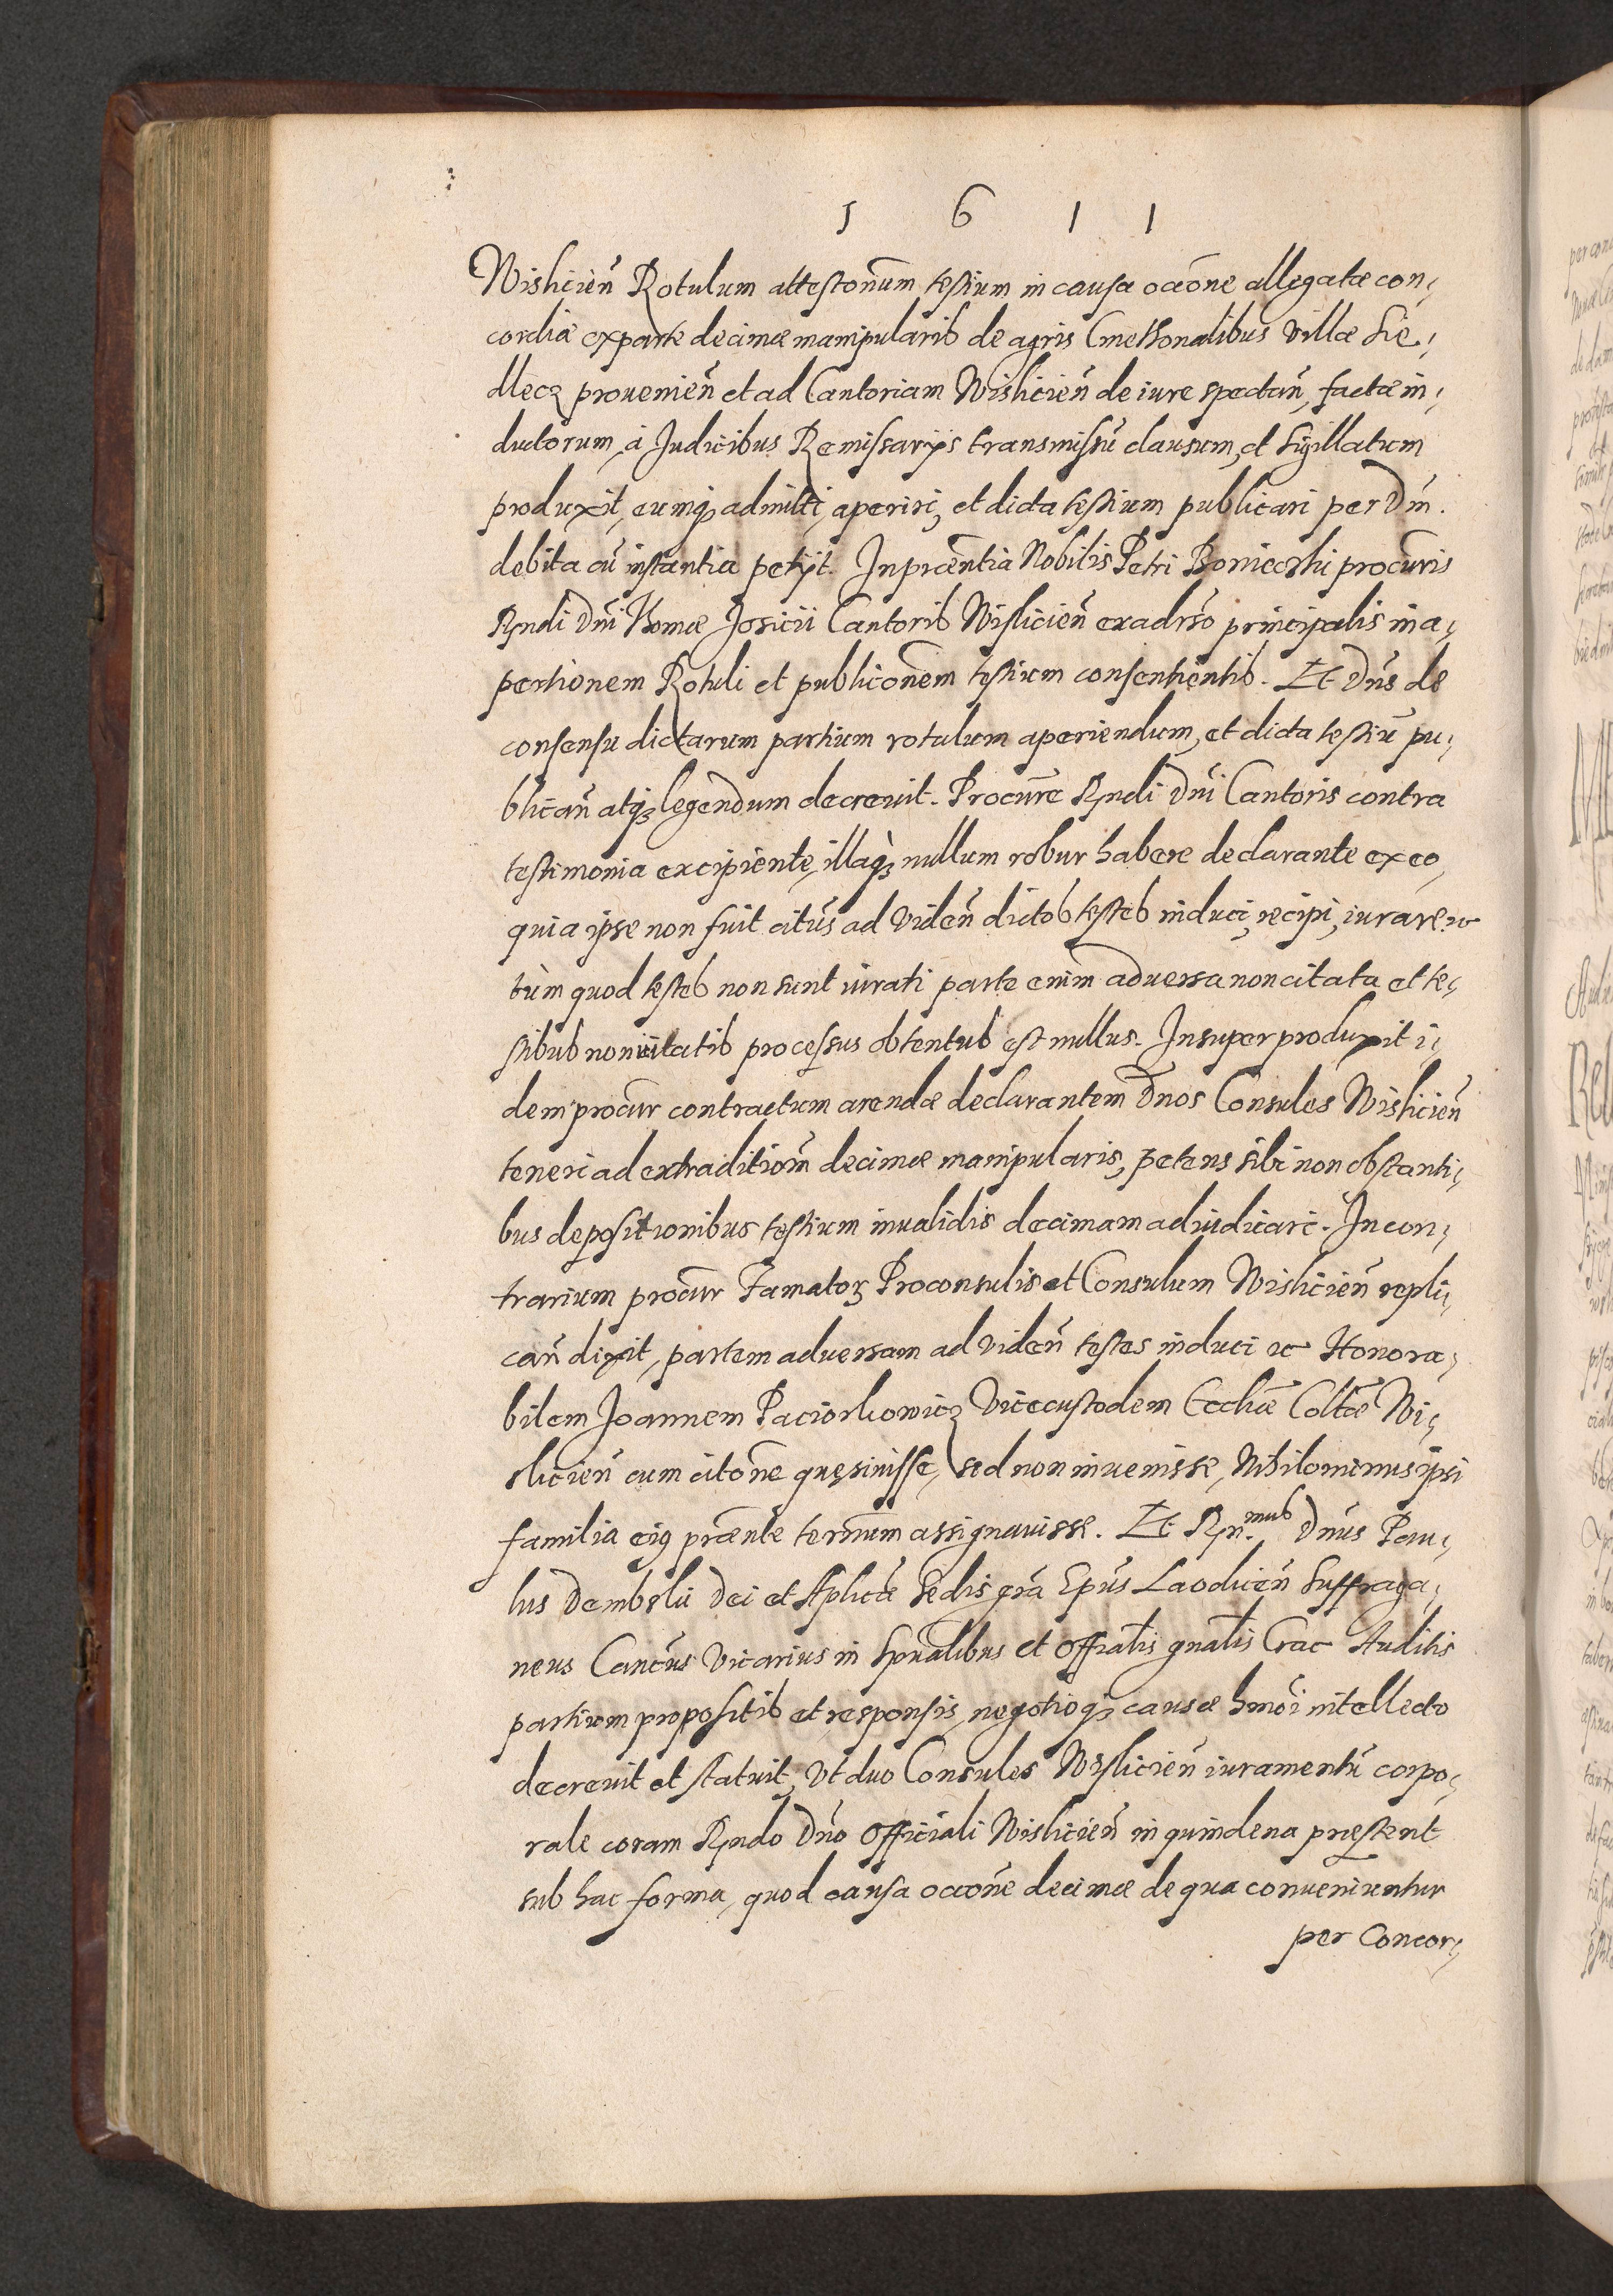 1 6 1 1
Wisliciēn Rotulum attestonūm testium in causa ocōne allegatæ con,
cordiæ ex parte decimæ manipularis de agris Cmethonalibus villæ Sie,
dlecz prouenieñ et ad Cantoriam Wisliciēn de iure spectañ, factæ in,
ductorum, à Judicibus Remissarijs transmissū clausum, et sigillatum
produxit, eumq; admitti, aperiri, et dicta testium publicari per Dm̄.
debita cū instantia petijt. In præntia Nobilis Petri Borniecski procūris
Rndi Dnī Thomæ Josicii Cantoris Wisliciēn ex adrso principalis in a,
pertionem Rotuli et publiconēm testium consentientis. Et Dn̄s de
consensu dictarum partium rotulum aperiendum, et dicta testiū pu,
blicañ atq; legendum decrevit. Procūre Rndi Dnī Cantoris contra
testimonia excipiente, illaq; nullum robur habere declarante ex eo,
quia ipse non fuit citūs ad videñ dictos testes induci, recipi, iurare. &c
tùm quod testes non sunt iurati parte enim aduersa non citata et te,
stibus non citatis processus obtentus est nullus. Insuper produxit i,
dem procūr contractum arendæ declarantem Dn̄os Consules Wisliciēn
teneri ad extraditiōm decimæ manipularis, petens sibi non obstanti,
bus depositionibus testium inualidis decimam adiudicari. In con,
trarium procūr Famatoꝝ Proconsulis et Consulum Wisliciēn repli,
cañ dixit, partem aduersam ad videñ testes induci &c Honora,
bilem Joannem Paciorkowicz Vicecustodem Ecclīæ Collǣ Wi,
sliciēn cum citōne quęsiuisse, sed non inuenisse, Nihilominus ipsi
familia eiꝰ præn̄te termīnum assignauisse. Et Rn.mus Dn̄us Pau,
lus Dembski Dei et Aplicæ Sedis grā Epūs Laodiceñ Suffraga,
neus Cancūs Vicarius in Spūalibus et Offīalis gnālis Crac Auditis
partium propositis et responsis, negotioq; causæ hmōi intellecto
decrevit et statuit, Vt duo Consules Wisliciēn iuramentū corpo,
rale coram Rndo Dn̄o Officiali Wisliciēn in quindena præstent
sub hac forma, quod causa ocōne decimæ de qua conueniuntur
per Concor,